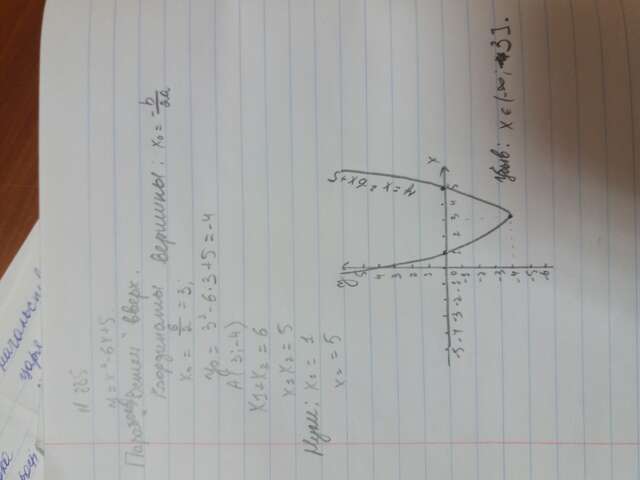 начальств
царе
N 225
y = x² - 6x + 5.
Парабола
"Ветви" вверх.
Координаты вершины: x₀ = -b/2a
x₀ = 6/2 = 3;
y₀ = 3² - 6·3 + 5 = -4
A(3; -4)
x1 + x2 = 6
x1 x2 = 5
Нули: x1 = 1
x2 = 5
y
5
4
3
2
1
-5 -4 -3 -2 -1 0 1 2 3 4 5 x
-1
-2
-3
-4
-5
-6
y = x² - 6x + 5
Убыв: x ∈ (-∞; 3].